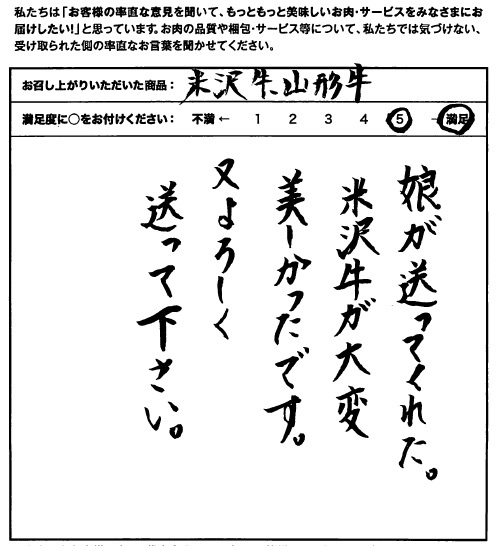 私たちは「お客様の率直な意見を聞いて、もっともっと美味しいお肉・サービスをみなさまにお
届けしたい!」と思っています。お肉の品質や梱包・サービス等について、私たちでは気づけない、
受け取られた側の率直なお言葉を聞かせてください。
お召し上がりいただいた商品： 米沢牛、山形牛
満足度に○をお付けください： 不満 ← 1 2 3 4 5 → 満足
娘が送ってくれた。
米沢牛が大変
美しかったです。
又よろしく
送って下さい。